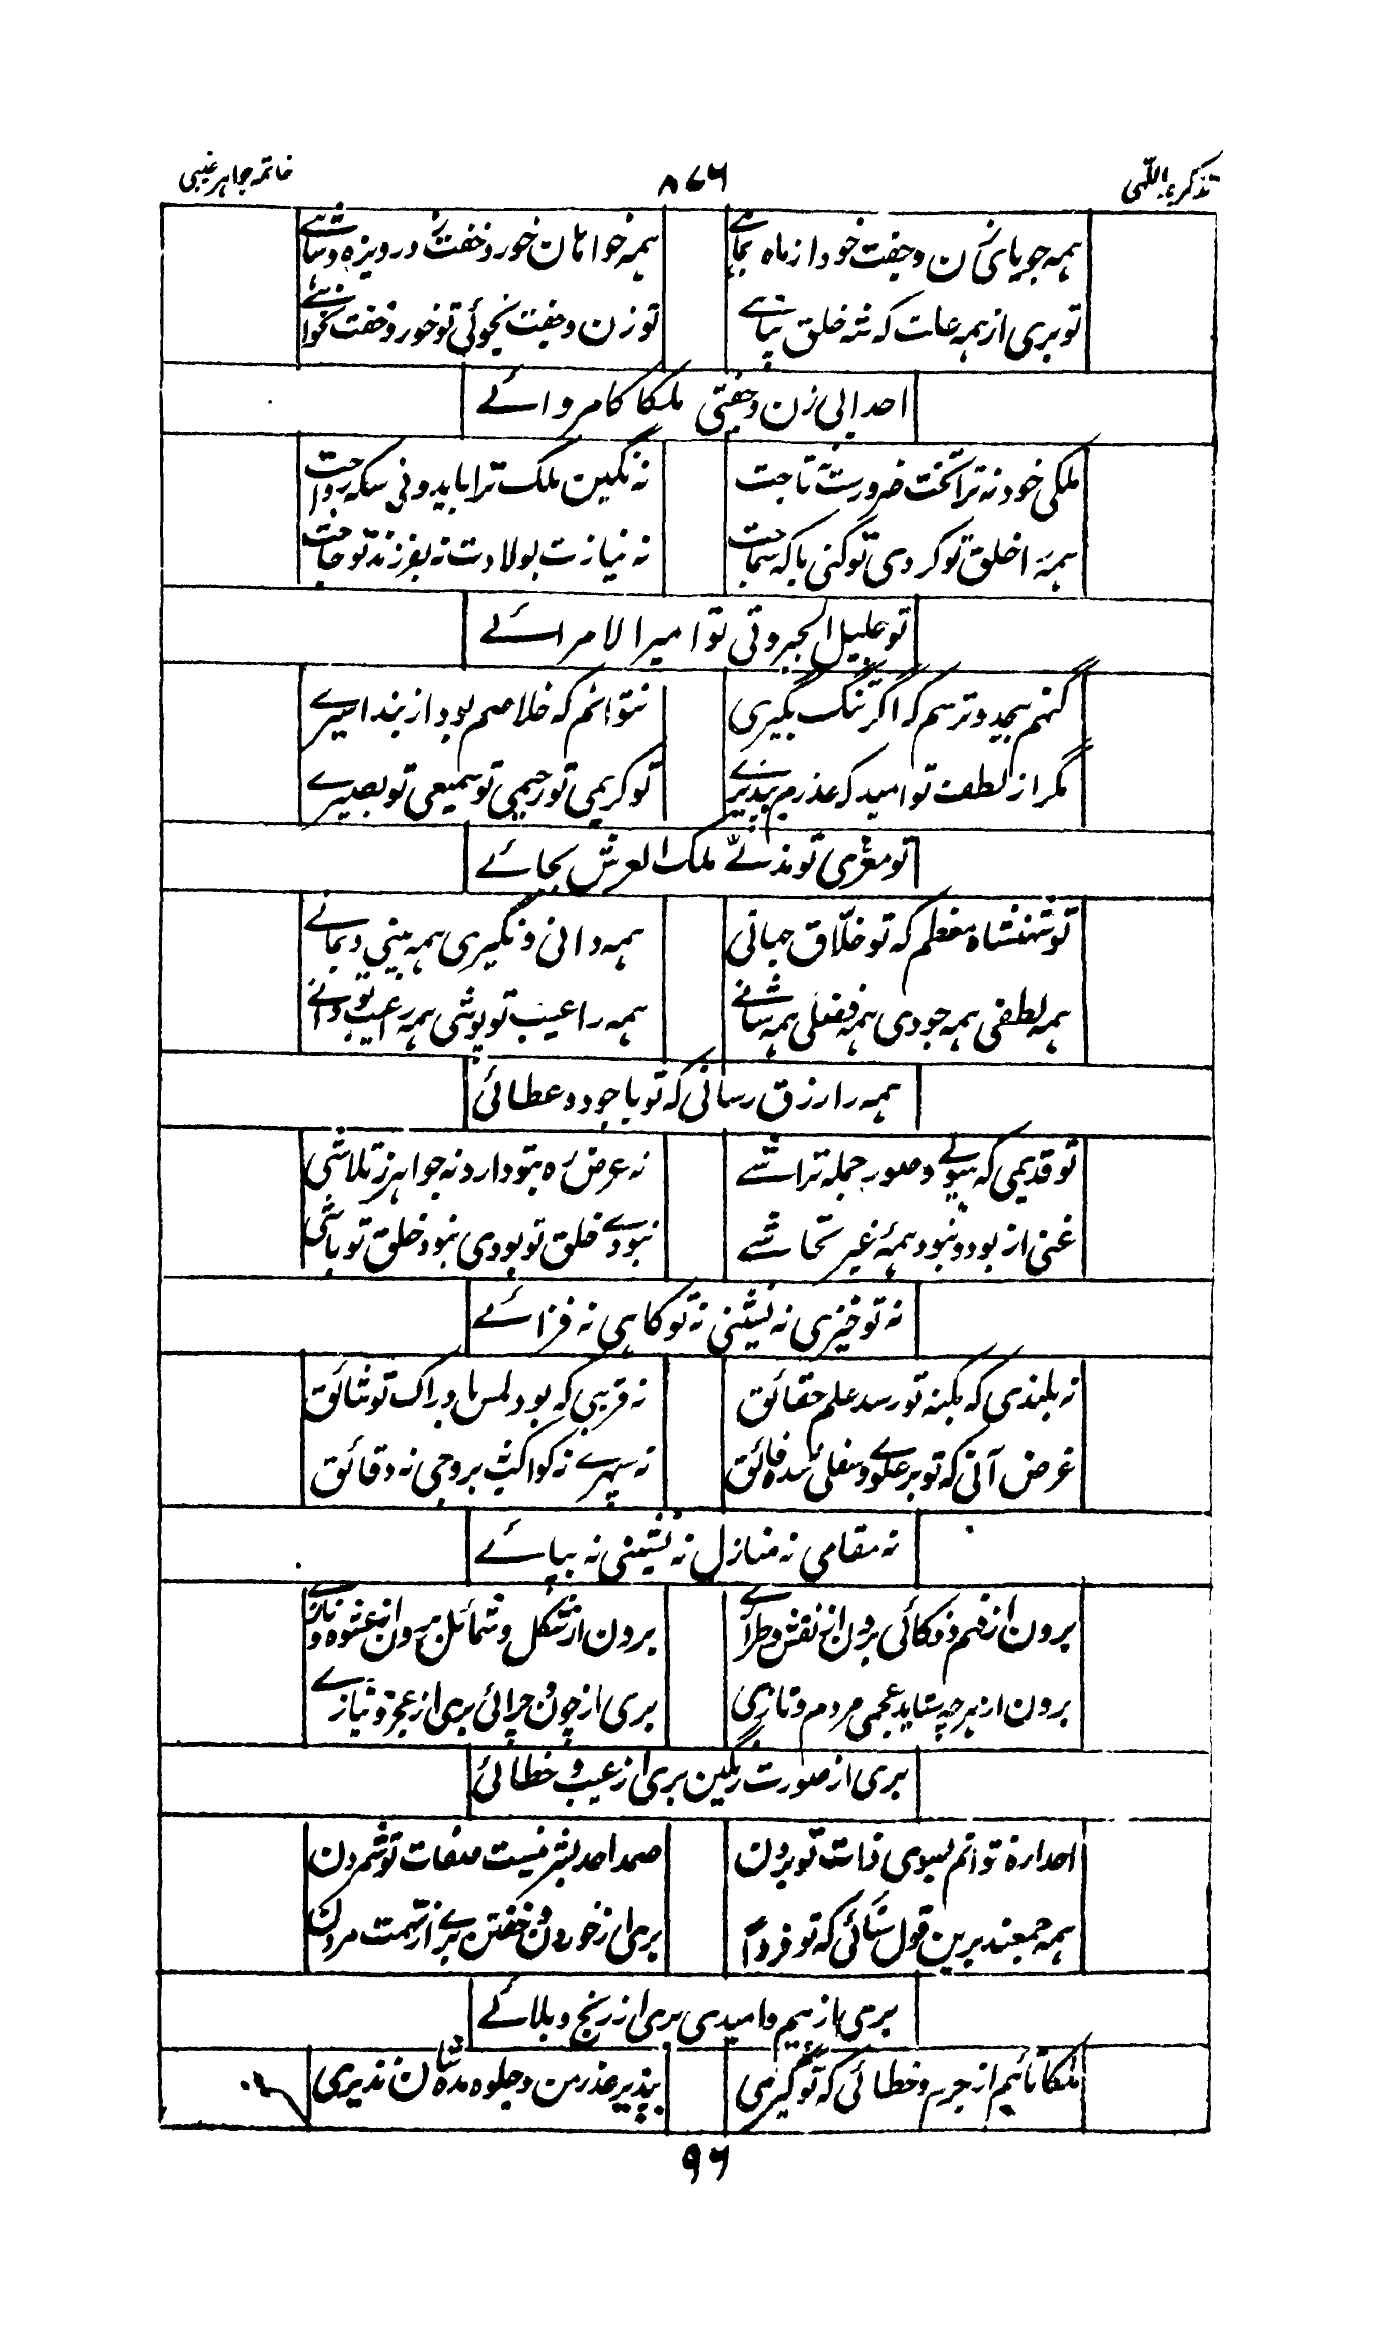 تذکرۂ اللّٰہی ۸۷۶ خاتمہ جواہر غیبی
ہمہ جویای زن و جفت خود از ماہ بجاہے ہمہ خواہان خور و خفت در ویزہ و شاہے
تو بری از ہمہ عات کہ شہ خلق پناہے تو زن و جفت نجوئی تو خور و خفت نخواہے
احدا بی زن و جفتی ملکا کامروائے
ملکی خود نہ ترا تخت ضرورست تاجت نہ نگین ملک ترا باید و نی سکہ رواجت
ہمہ را خلق تو کردی تو کنی باکہ سماجت نہ نیازت بولادت نہ بفرزند تو حاجت
تو جلیل الجبروتی تو امیر الامرائے
گنہم بیحد و ترسم کہ اگر تنگ بگیری نتوانم کہ خلاصم بود از بند اسیرے
مگر از لطف تو امید کہ عذرم بپذیرے تو کریمی تو رحیمی تو سمیعی تو بصیرے
تو معزی تو مذلے ملک العرش بجائے
تو شہنشاہ معظم کہ تو خلّاق جہانی ہمہ دانی و نگیری ہمہ بینی و بمانے
ہمہ لطفی ہمہ جودی ہمہ فضلی ہمہ شانے ہمہ را عیب تو پوشی ہمہ را غیب تو دانے
ہمہ را رزق رسانی کہ تو با جود و عطائی
تو قدیمی کہ ہیولے و صور جملہ تراشے نہ عرض رہ بتو دارد نہ جواہر ز تلاشی
غنی از بود و نبود ہمۂ غیر تحاشے نبودے خلق تو بودی نبود خلق تو باشی
نہ تو خیزی نہ نشینی نہ تو کاہی نہ فزائے
نہ بلندی کہ بکنہ تو رسد علم حقائق نہ قریبی کہ بود لمس با دراک تو شائق
غرض آنی کہ تو بر علوے و سفلی شدہ فائق نہ سپہرے نہ کواکب نہ بروجی نہ دقائق
نہ مقامی نہ منازل نہ نشینی نہ بپائے
برون از فہم و ذکائی برون از نقش و طرازے برون از شکل و شمائل برون از عشوہ و نازے
برون از ہرچہ ستاید عجمی مردم و تازی بری از چون و چرائی بری از عجز و نیازے
بری از صورت رنگین بری از عیب و خطائی
احدا رہ نتوانم بسوی ذات تو بردن صمدا حد بشر نیست صفات تو شمردن
ہمہ جمعند برین قول سنائی کہ تو فرداً بری از خوردن و خفتن بری از تہمت مردن
بری از بیم و امیدی بری از رنج و بلائے
ملکا تائبم از جرم و خطائی کہ تو گیری بپذیر عذر من و جلوہ مدہ شان نذیری
۹۶